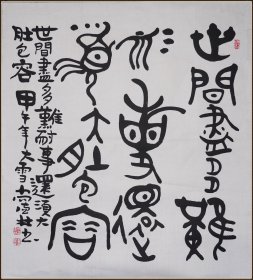 世間盡多難
耐事還
須大肚包容
世間盡多難耐事還須大
肚包容 甲午年大雪